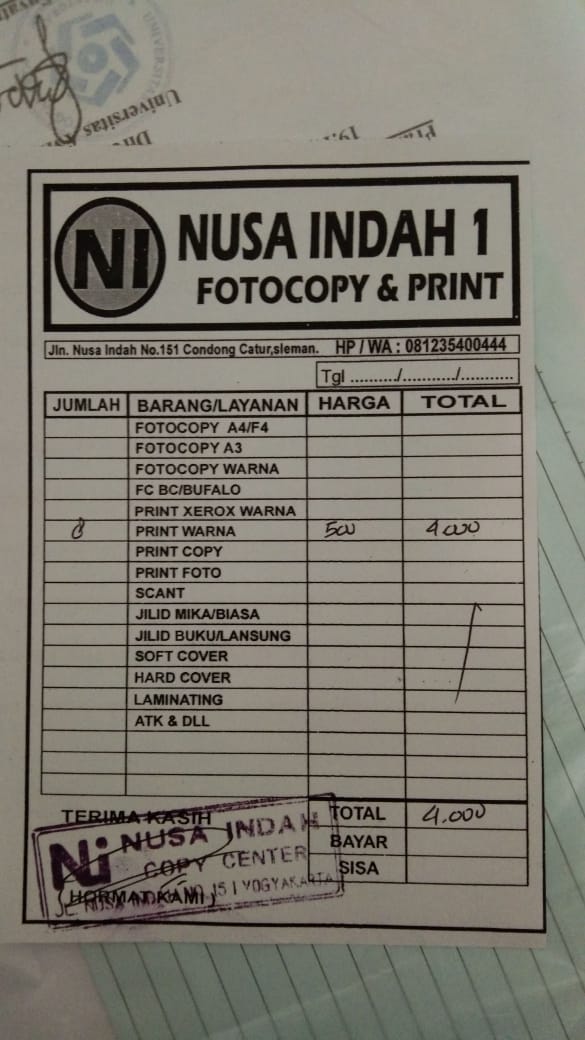 Universitas
NI NUSA INDAH 1
FOTOCOPY & PRINT
Jln. Nusa Indah No.151 Condong Catur,sleman. HP / WA : 081235400444
Tgl ........../.........../...........
JUMLAH BARANG/LAYANAN HARGA TOTAL
FOTOCOPY A4/F4
FOTOCOPY A3
FOTOCOPY WARNA
FC BC/BUFALO
PRINT XEROX WARNA
8 PRINT WARNA 500 4.000
PRINT COPY
PRINT FOTO
SCANT
JILID MIKA/BIASA
JILID BUKU/LANSUNG
SOFT COVER
HARD COVER
LAMINATING
ATK & DLL
TERIMA KASIH TOTAL 4.000
BAYAR
SISA
Ni NUSA INDAH
COPY CENTER
(HORMAT KAMI)
JL. NUSA INDAH NO 151 YOGYAKARTA